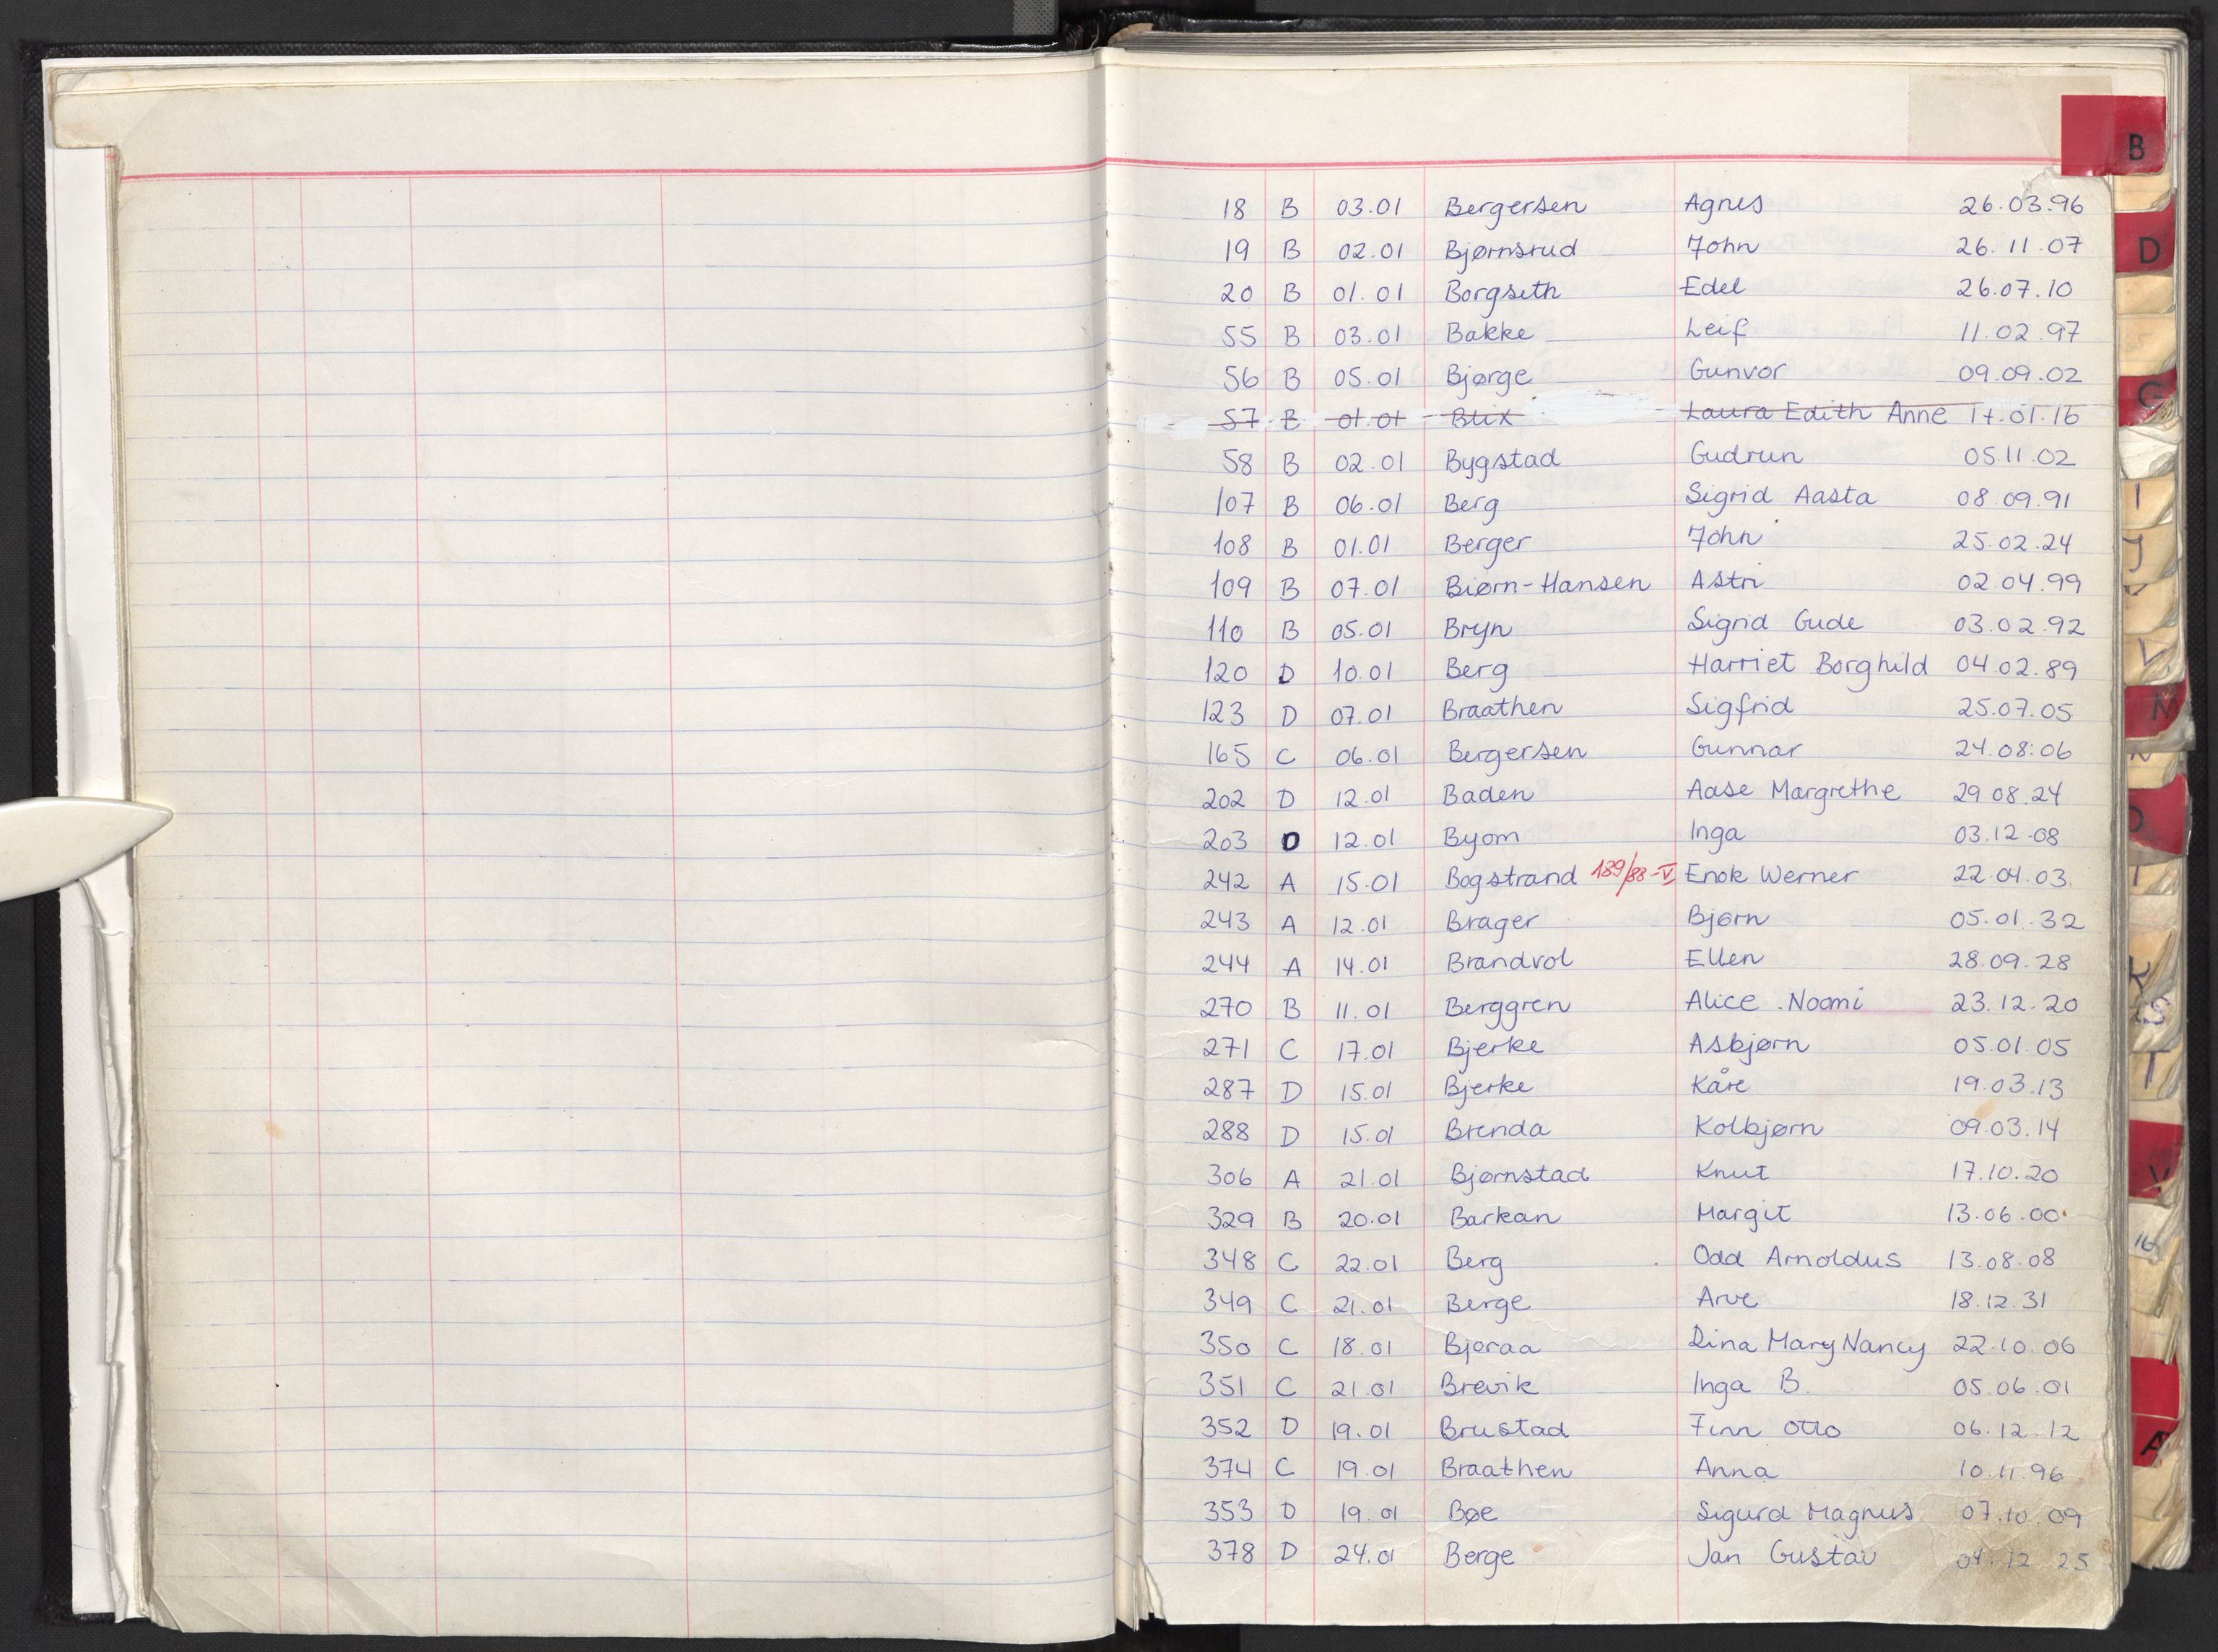 18 B 03.01 Bergersen Agnes 26.03.96
19 B 02.01 Bjørnsrud John 26.11.07
20 B 01.01 Borgseth Edel 26.07.10
55 B 03.01 Bakke Leif 11.02.97
56 B 05.01 Bjørge Gunvor 09.09.02
57 B 01.01 Blix Laura Edith Anne 17.01.16
58 B 02.01 Bygstad Gudrun 05.11.02
107 B 06.01 Berg Sigrid Aasta 08.09.91
108 B 01.01 Berger John 25.02.24
109 B 07.01 Biørn-Hansen Astri 02.04.99
110 B 05.01 Bryn Sigrid Gude 03.02.92
120 D 10.01 Berg Harriet Borghild 04.02.89
123 D 07.01 Braathen Sigfrid 25.07.05
165 C 06.01 Bergersen Gunnar 24.08.06
202 D 12.01 Baden Aase Margrethe 29.08.24
203 D 12.01 Byom Inga 03.12.08
242 A 15.01 Bogstrand 189/88-V Enok Werner 22.04.03
243 A 12.01 Brager Bjørn 05.01.32
244 A 14.01 Brandvol Ellen 28.09.28
270 B 11.01 Berggren Alice Noomi 23.12.20
271 C 17.01 Bjerke Asbjørn 05.01.05
287 D 15.01 Bjerke Kåre 19.03.13
288 D 15.01 Brenda Kolbjørn 09.03.14
306 A 21.01 Bjørnstad Knut 17.10.20
329 B 20.01 Barkan Margit 13.06.00
348 C 22.01 Berg Odd Arnoldus 13.08.08
349 C 21.01 Berge Arve 18.12.31
350 C 18.01 Bjoraa Dina Mary Nancy 22.10.06
351 C 21.01 Brevik Inga B. 05.06.01
352 D 19.01 Brustad Finn Otto 06.12.12
374 C 19.01 Braathen Anna 10.11.96
353 D 19.01 Bøe Sigurd Magnus 07.10.09
378 D 24.01 Berge Jan Gustav 04.12.25
B
D
G
I
J
V
M
N
S
T
V
A